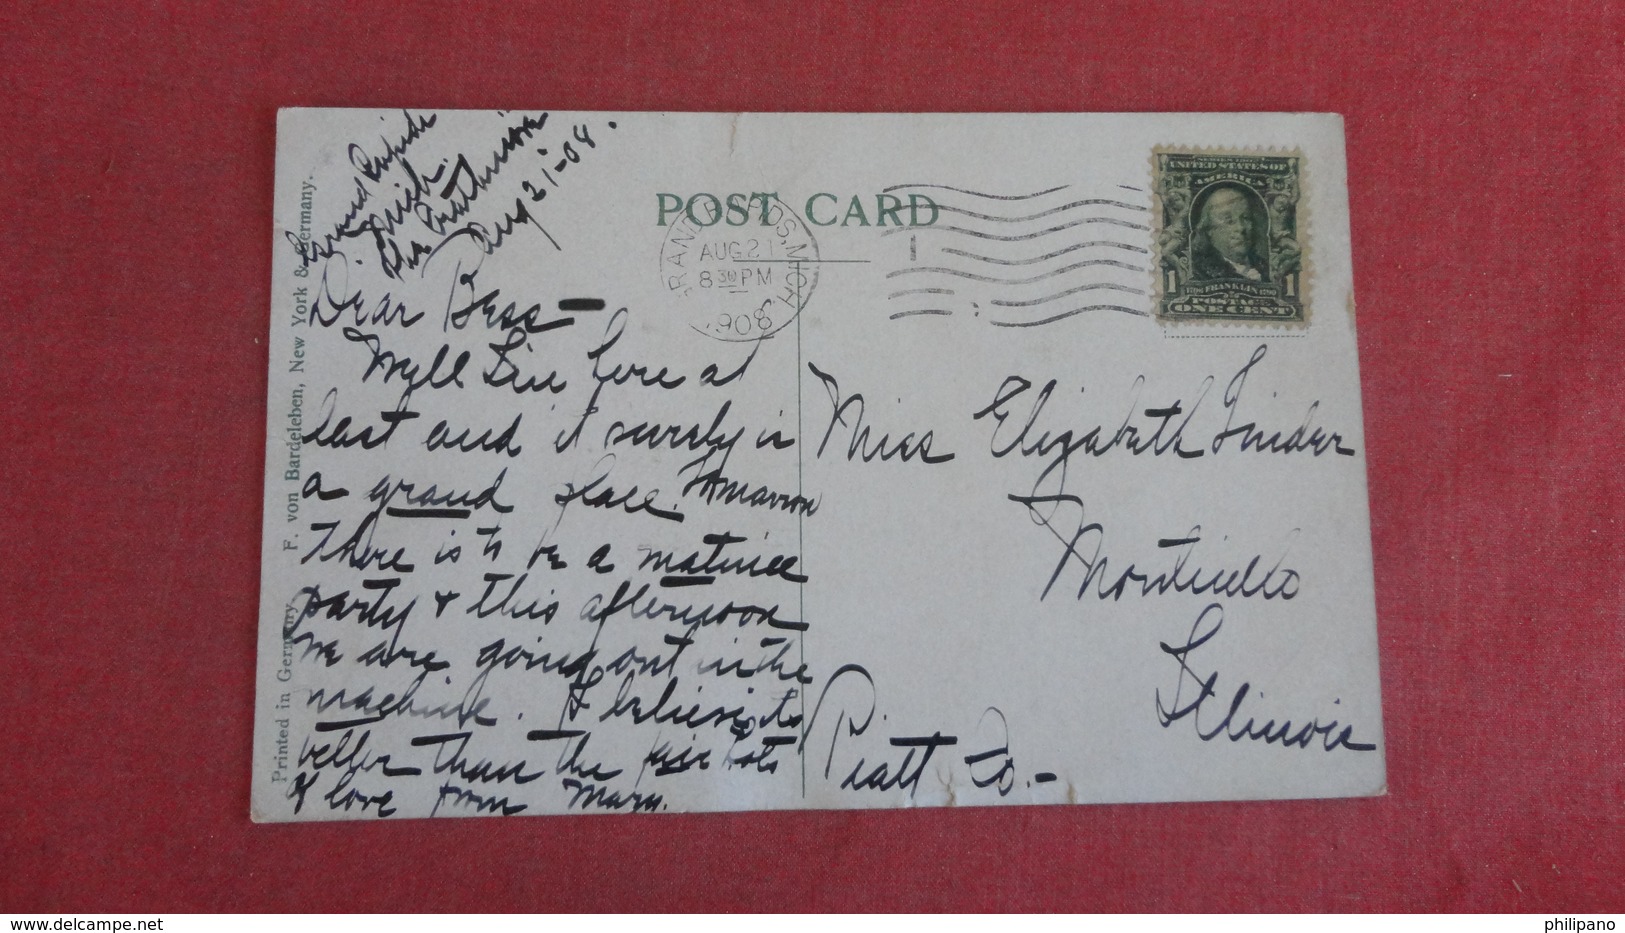 Grand Rapids
Mich.
Aug 21-08.
POST CARD
GRAND RAPIDS, MICH.
AUG 21
8 30 PM
1908
1
SERIES 1902
UNITED STATES OF
AMERICA
1 1
1706 FRANKLIN 1790
POSTAGE
ONE CENT
Dear Bess —
Well I'm here at
last and it surely is
a grand place. Tomarrow
There is to be a matinee
party & this afternoon
we are going out in the
machine. I believe its
better than the
of love from Mary.
Miss Elizabeth
Monticello
Illinois
Piatt Co.-
Printed in Germany. F. von Bardeleben, New York & Germany.
philipano